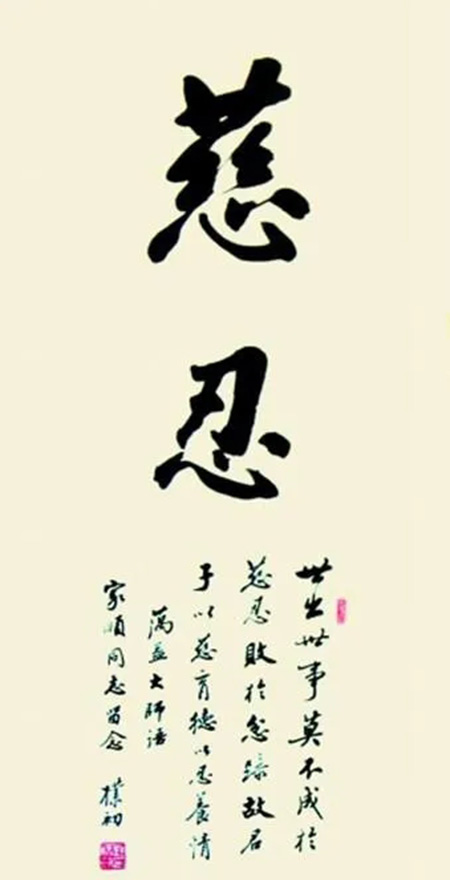 慈
忍
世出世事莫不成於
慈忍敗於忿躁故君
子以慈育德以忍養情
蕅益大師語
家順同志留念 樸初